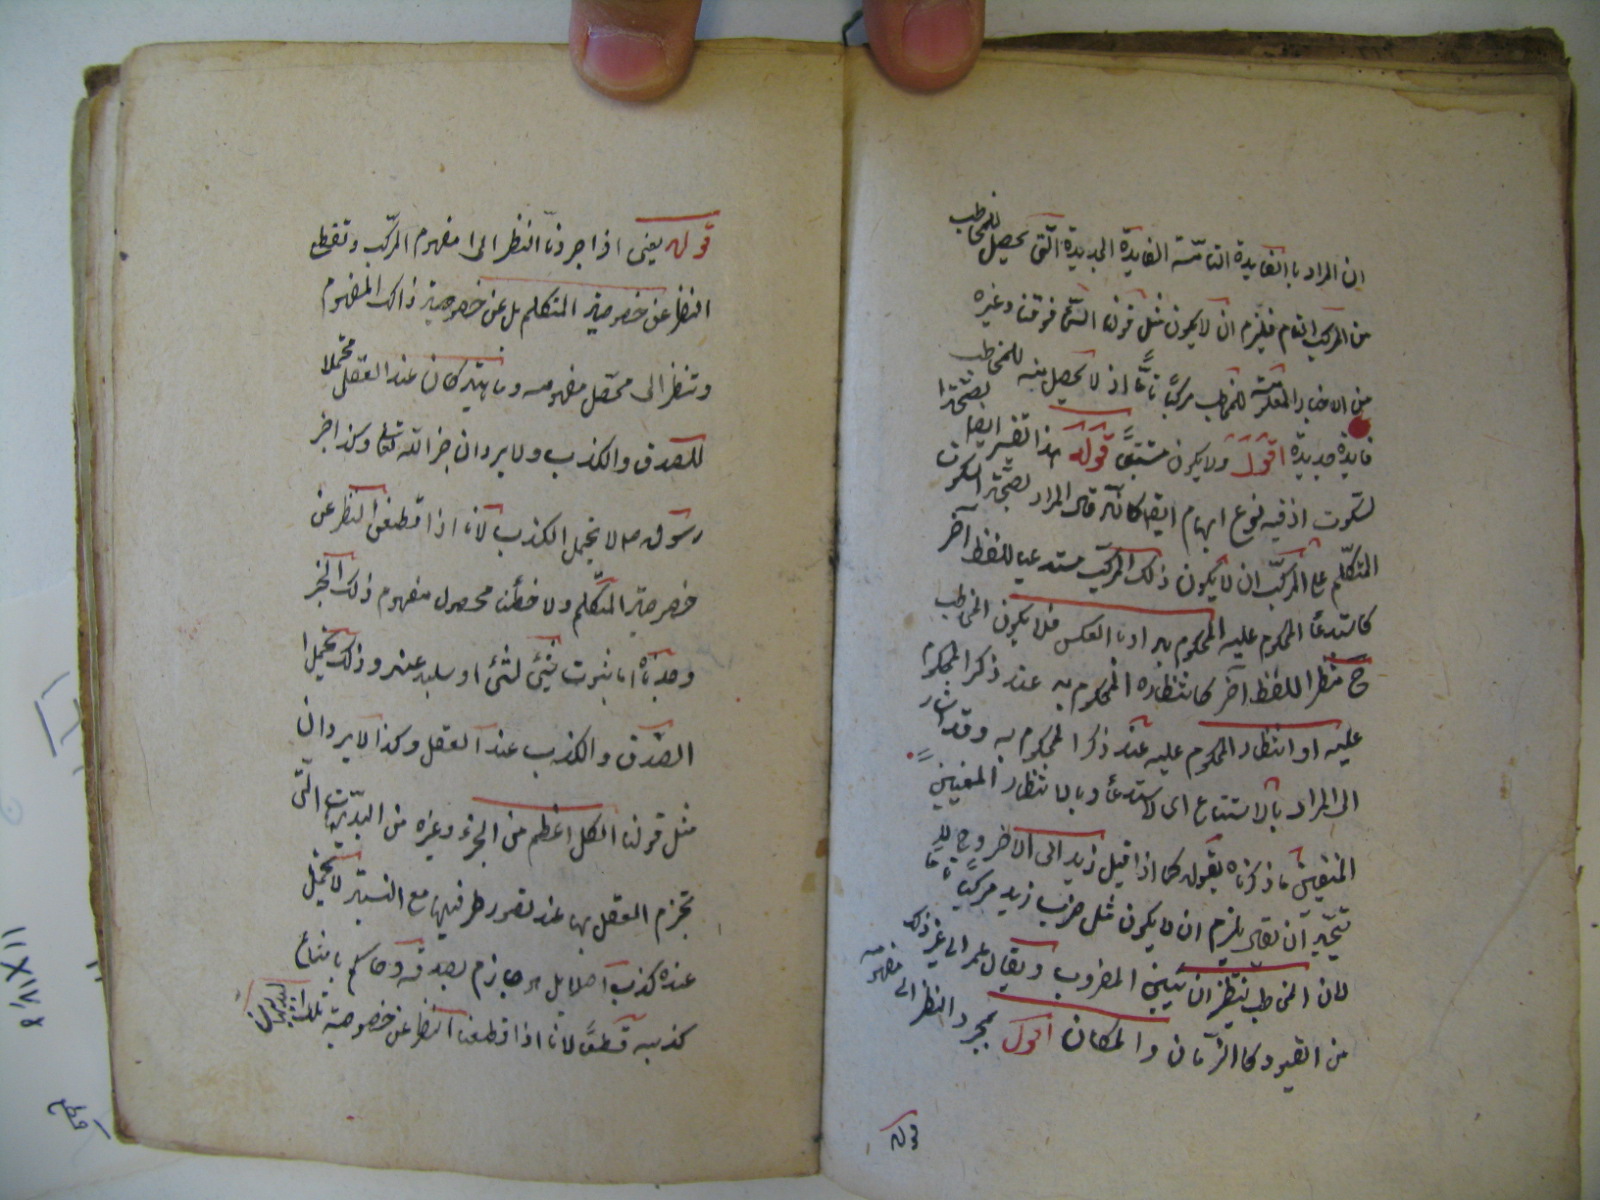 ان المراد بالفايدة التامّة الفايدة الجديدة الّتى يحصل للمخاطب
من المركب التام فيلزم ان لا يكون مثل قولنا السّما فوقنا وغيره
من الاخبار المعلومة للمخاطب مركبًا تامًّا اذ لا يحصل منه للمخاطب
فايدة جديدة اقول ولا يكون مستتبعًا قوله هذا تفسير ايضا لصحّة
السّكوت اذ فيه نوع ابهام ايضا كانّه قال المراد بصحّة السكوت
المتكلّم على المركّب ان لا يكون ذلك المركّب مستدعيا للفظ آخر
كاستدعا المحكوم عليه المحكوم به او بالعكس فلا يكون المخاطب
ح منتظرا للفظ آخر كانتظاره المحكوم به عند ذكر المحكوم
عليه او انتظار المحكوم عليه عند ذكر المحكوم به وقد اشار
الى المراد بالاستتباع اى الاستدعا وبالانتظار المنفيين
المنفيين ما ذكرناه بقوله كما اذا قيل زيد الى الآخر وح لا
يتّجه آن يقال يلزم ان لا يكون مثل ضرب زيد مركبًا تامًّا
لان المخاطب ينتظر ان يبين المضروب ويقال عمر الى غير ذلك
من القيود كالزّمان والمكان اقول بمجرد النظر الى مفهومه
قوله
قوله يعنى اذا جردنا النظر الى مفهوم المركّب ونقطع
النظر عن خصوصية المتكلم بل عن خصوصية ذلك المفهوم
وننظر الى محصّل مفهومه وماهيته كان عند العقل محتملا
للصدق والكذب ولا يرد ان خبر اللّه تعالى وكذا خبر
رسوله لا يحتمل الكذب لانا اذا قطعنا النظر عن
خصوصية المتكلّم ولاحظنا محصول مفهوم ذلك الخبر
وجدناه اما ثبوت شئ لشئ او سلبه عنه وذلك يحتمل
الصّدق والكذب عند العقل وكذا لا يرد ان
مثل قولنا الكل اعظم من الجزء وغيره من البديهيات الّتى
تجزم العقل بها عند تصور طرفيها مع النسبة لا يحتمل
عنده كذب اصلا بل هو جازم بصدقه وحاكم بامتناع
كذبه قطعًا لانا اذا قطعنا النظر عن خصوصية تلك